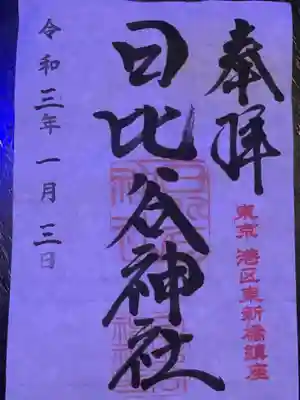 奉拝
東京 港区東新橋鎮座
日比谷神社
令和三年一月三日